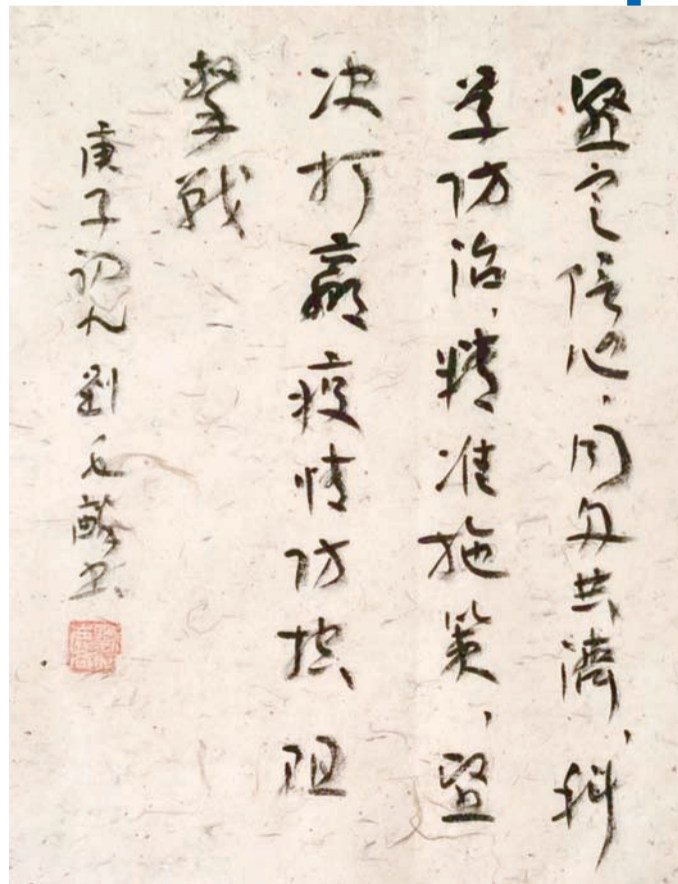 坚定信心，同舟共濟，科
学防治，精准施策，坚
决打赢疫情防控阻
擊战
庚子初九 劉 书